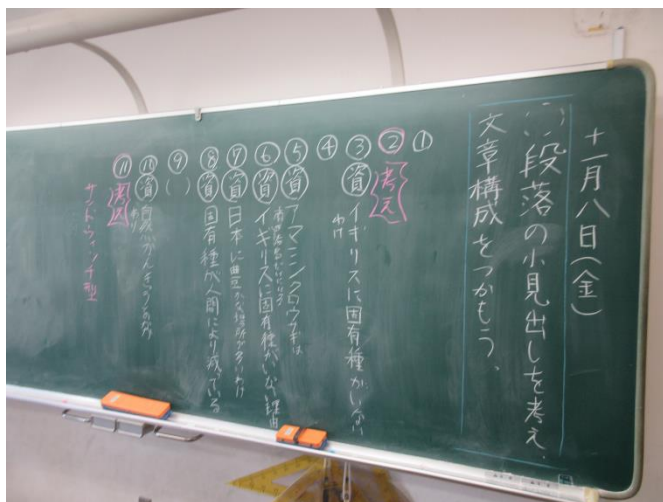 十一月八日(金)
段落の小見出しを考え、
文章構成をつかもう。
①
②考え
③資 イギリスに固有種がいない
わけ
④
⑤資 アマミノクロウサギは
⑥資 イギリスに固有種がいない理由
⑦資 日本に
⑧資 固有種が人間により減っている
⑨( )
⑩資
⑪考え
サンドウィッチ型